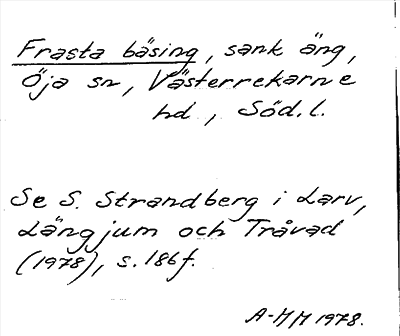 Frasta bäsing, sank äng,
Öja sn, Västerrekarne
hd, Söd.l.
Se S. Strandberg i Larv,
Längjum och Tråvad
(1978), s. 186f.
A-MM 1978.